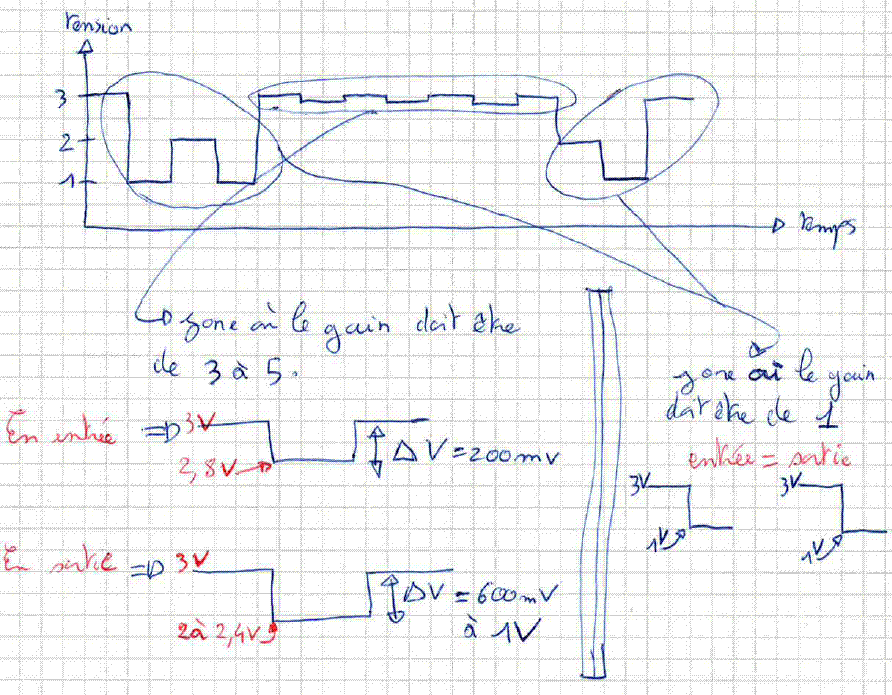 Tension
3
2
1
Temps
zone où le gain doit être
de 3 à 5.
En entrée => 3V
2,8V
ΔV = 200mV
En sortie => 3V
2 à 2,4V
ΔV = 600mV
à 1V
zone où le gain
doit être de 1
entrée = sortie
3V
1V
3V
1V